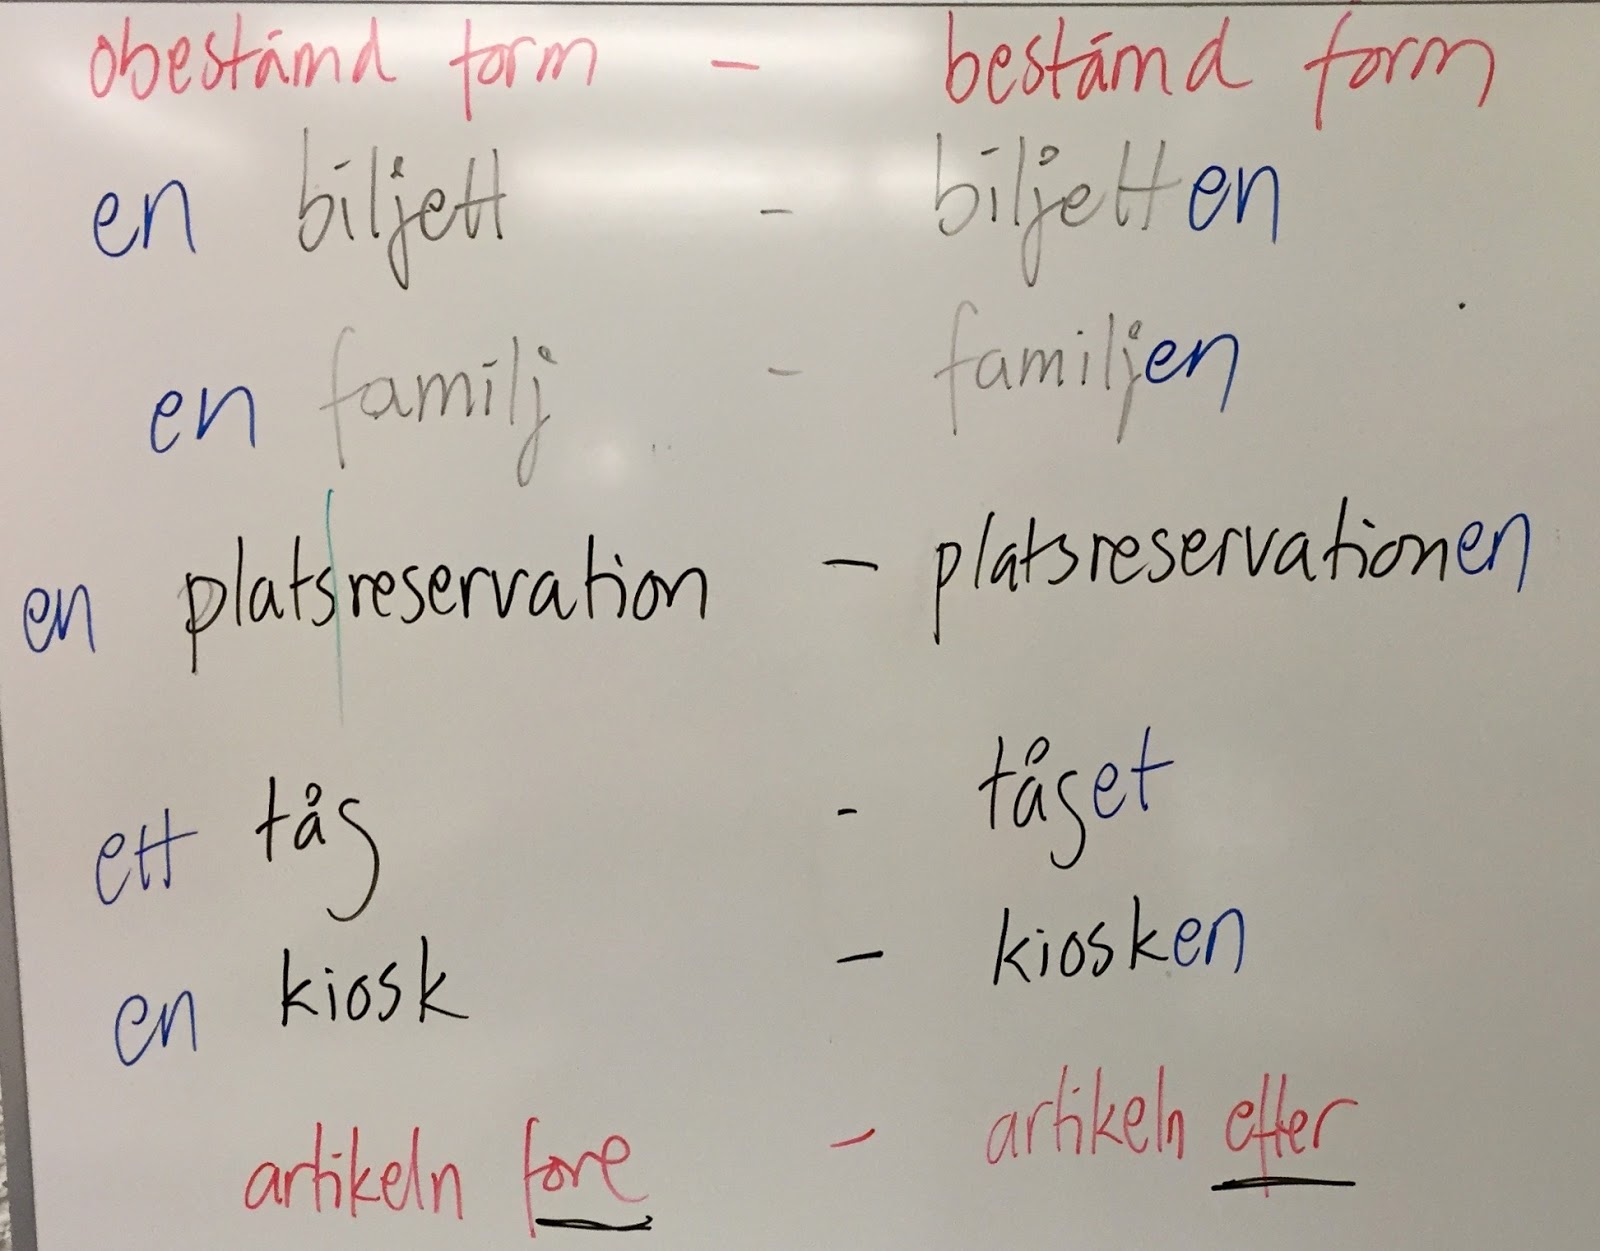 obestämd form - bestämd form
en biljett - biljetten
en familj - familjen
en platsreservation - platsreservationen
ett tåg - tåget
en kiosk - kiosken
artikeln före - artikeln efter